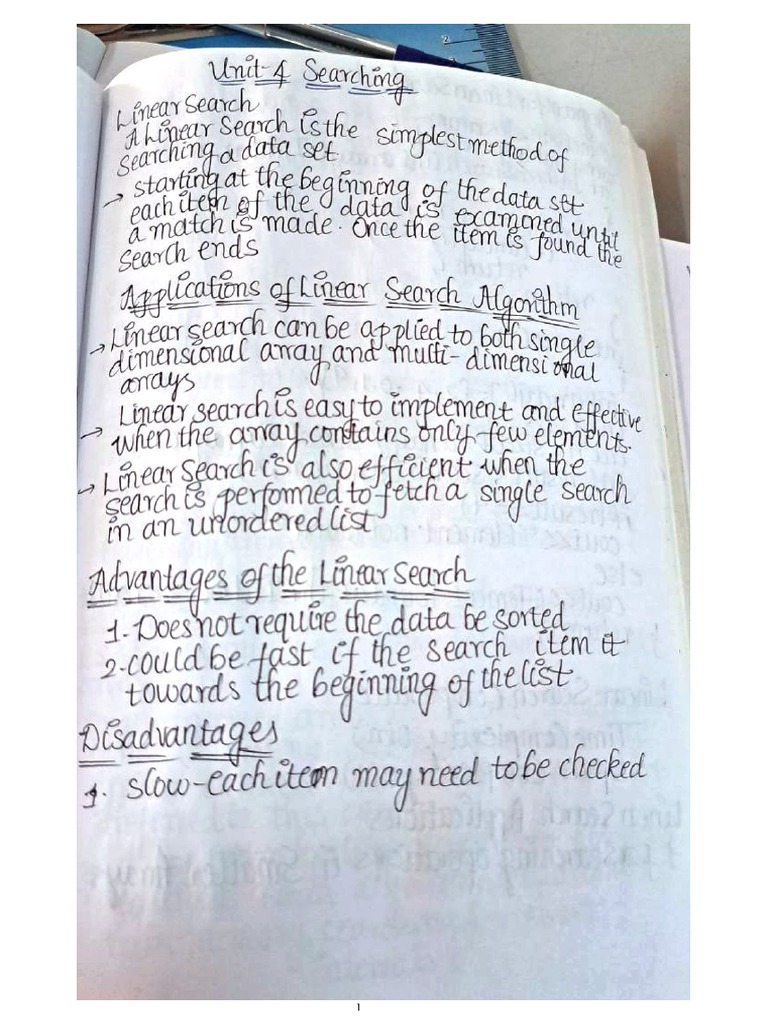 Unit-4 Searching
Linear Search
A Linear Search is the simplest method of
searching a data set
→ starting at the beginning of the data set
each item of the data is examoned until
a match is made. Once the item is found the
search ends
Applications of Linear Search Algorithm
→ Linear search can be applied to both single
dimensional array and multi-dimensional
arrays
→ Linear search is easy to implement and effective
when the array contains only few elements.
→ Linear Search is also efficient when the
search is performed to fetch a single search
in an unordered list
Advantages of the Linear Search
1. Does not require the data be sorted
2. could be fast if the search item it
towards the beginning of the list
Disadvantages
1. slow-each item may need to be checked
1